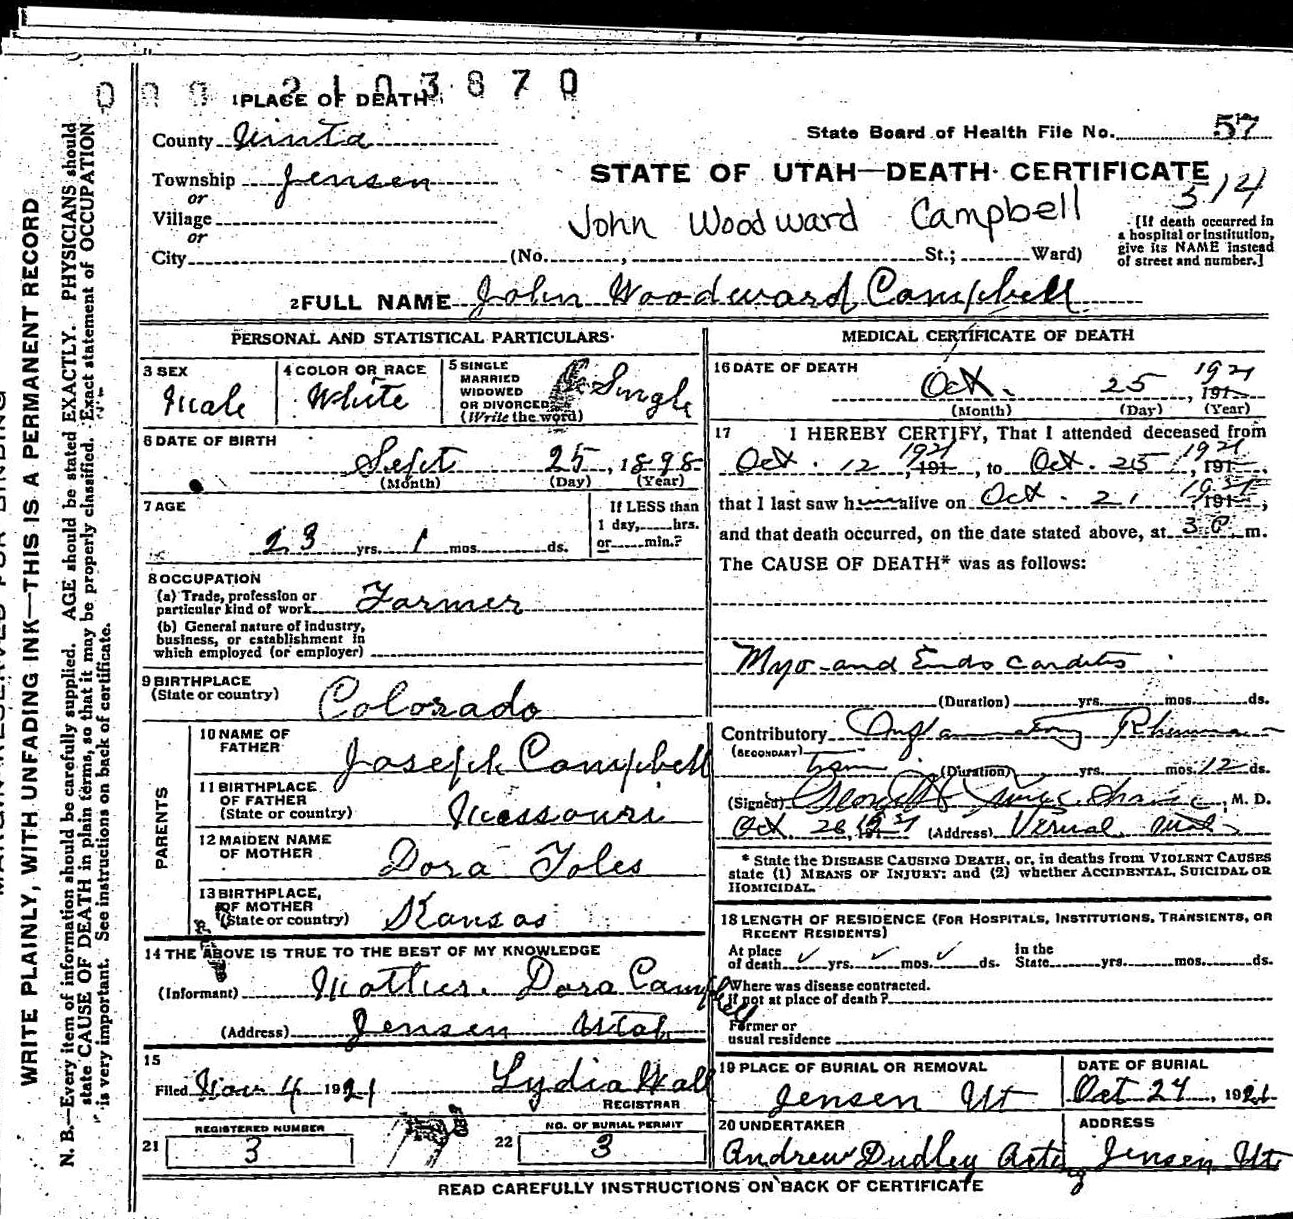 0 0 0 2 1 0 3 8 7 0
1 PLACE OF DEATH
County Uinta
State Board of Health File No. 57
Township Jensen
STATE OF UTAH—DEATH CERTIFICATE
514
or
Village
John Woodward Campbell
or
City (No. , St.; Ward)
[If death occurred in
a hospital or institution,
give its NAME instead
of street and number.]
2 FULL NAME John Woodward Campbell
PERSONAL AND STATISTICAL PARTICULARS
3 SEX
Male
4 COLOR OR RACE
White
5 SINGLE
MARRIED
WIDOWED
OR DIVORCED
(Write the word)
Single
6 DATE OF BIRTH
Sept 25, 1898
(Month) (Day) (Year)
7 AGE
23 yrs. 1 mos. ds.
If LESS than
1 day, hrs.
or min.?
8 OCCUPATION
(a) Trade, profession or
particular kind of work Farmer
(b) General nature of industry,
business, or establishment in
which employed (or employer)
9 BIRTHPLACE
(State or country) Colorado
PARENTS
10 NAME OF
FATHER Joseph Campbell
11 BIRTHPLACE
OF FATHER
(State or country) Missouri
12 MAIDEN NAME
OF MOTHER Dora Toles
13 BIRTHPLACE,
OF MOTHER
(State or country) Kansas
14 THE ABOVE IS TRUE TO THE BEST OF MY KNOWLEDGE
(Informant) Mother. Dora Campbell
(Address) Jensen Utah
15
Filed Nov 4 1921 Lydia Hall
REGISTRAR
21 REGISTERED NUMBER
3
22 NO. OF BURIAL PERMIT
3
MEDICAL CERTIFICATE OF DEATH
16 DATE OF DEATH
Oct. 25 1921, 191
(Month) (Day) (Year)
17 I HEREBY CERTIFY, That I attended deceased from
Oct. 12 1921, 191 , to Oct. 25 1921, 191 ,
that I last saw him alive on Oct. 21 1921, 191 ,
and that death occurred, on the date stated above, at 3 P. m.
The CAUSE OF DEATH* was as follows:
Myo-and Endo carditis
(Duration) yrs. mos. ds.
Contributory Inflammatory Rheuma-
(SECONDARY) tism (Duration) yrs. mos. 12 ds.
(Signed) , M. D.
Oct. 26, 1921 (Address) Vernal, Utah
* State the DISEASE CAUSING DEATH, or, in deaths from VIOLENT CAUSES
state (1) MEANS OF INJURY; and (2) whether ACCIDENTAL, SUICIDAL OR
HOMICIDAL.
18 LENGTH OF RESIDENCE (FOR HOSPITALS, INSTITUTIONS, TRANSIENTS, OR
RECENT RESIDENTS)
At place
of death yrs. mos. ds. In the
State yrs. mos. ds.
Where was disease contracted.
if not at place of death?
Former or
usual residence
19 PLACE OF BURIAL OR REMOVAL
Jensen Ut
DATE OF BURIAL
Oct 27, 1921
20 UNDERTAKER
Andrew Dudley Acting
ADDRESS
Jensen Ut
READ CAREFULLY INSTRUCTIONS ON BACK OF CERTIFICATE
WRITE PLAINLY, WITH UNFADING INK—THIS IS A PERMANENT RECORD
N. B.—Every item of information should be carefully supplied. AGE should be stated EXACTLY. PHYSICIANS should
state CAUSE OF DEATH in plain terms, so that it may be properly classified. Exact statement of OCCUPATION
is very important. See instructions on back of certificate.